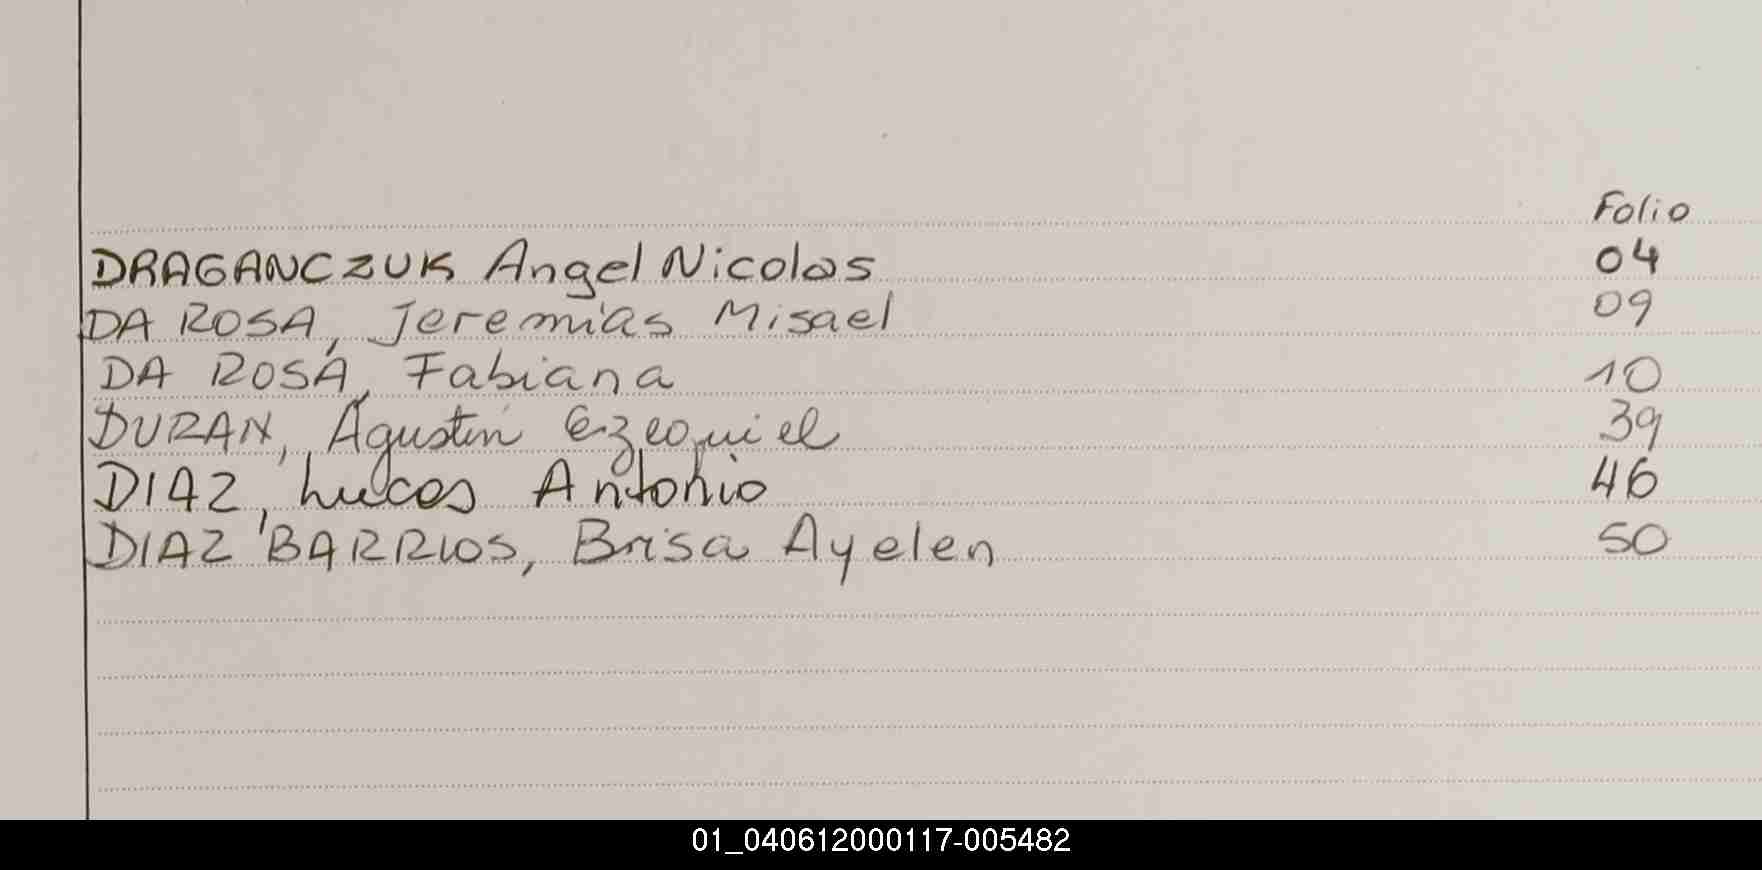 Folio
DRAGANCZUK Angel Nicolas 04
DA ROSA, Jeremías Misael 09
DA ROSA, Fabiana 10
DURAN, Agustín Ezequiel 39
DIAZ, Lucas Antonio 46
DIAZ BARRIOS, Brisa Ayelen 50
01_040612000117-005482